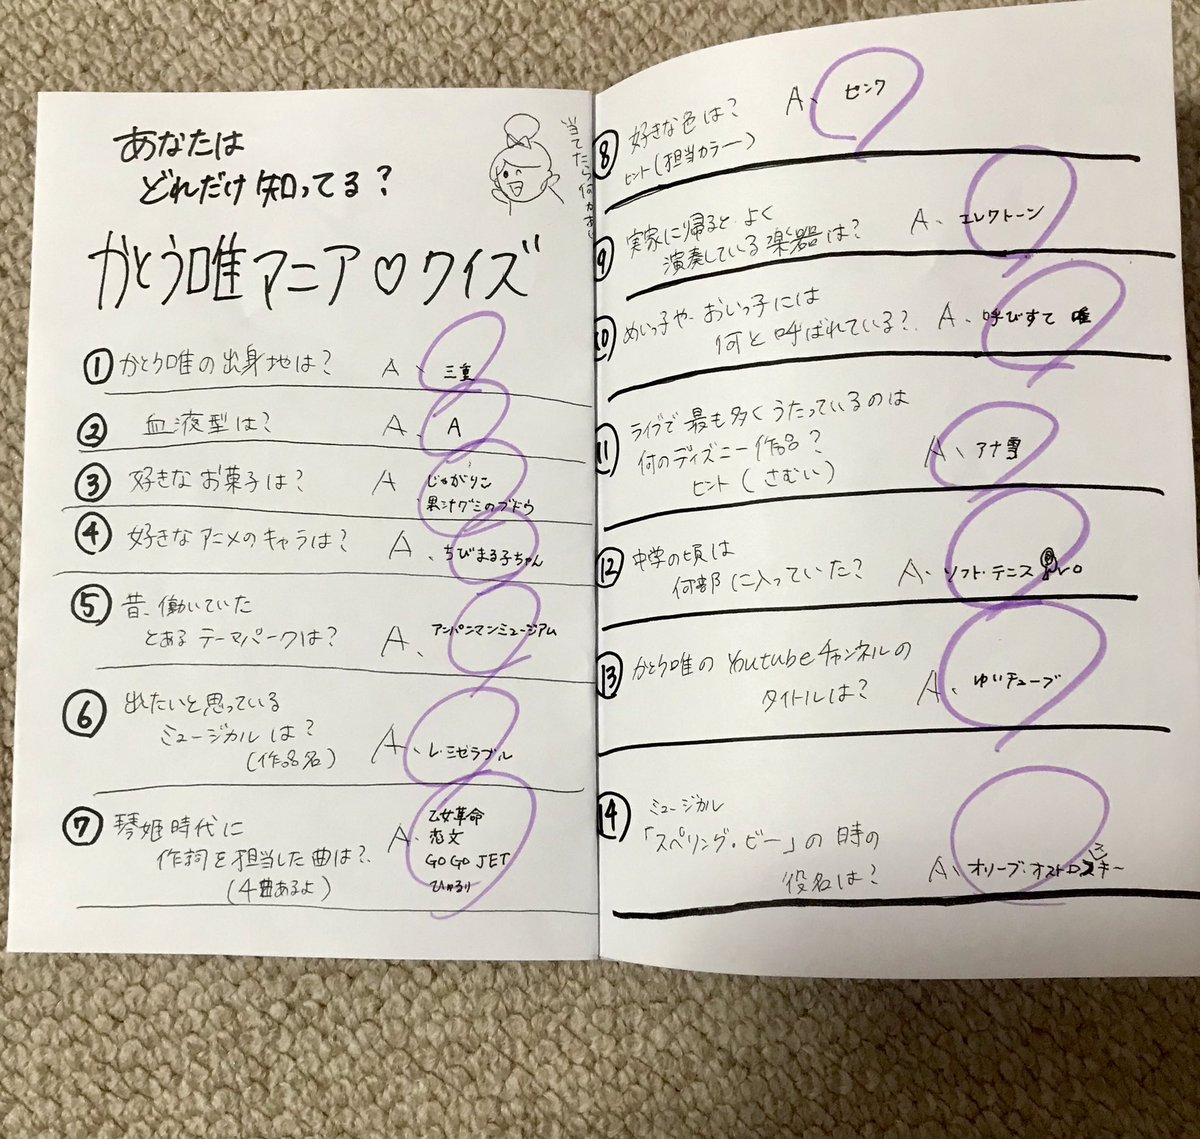 あなたは
どれだけ知ってる?
当てたら何かあり
かとう唯マニア♡クイズ
① かとう唯の出身地は? A、三重
② 血液型は? A、A
③ 好きなお菓子は? A、じゃがりこ
果汁グミのブドウ
④ 好きなアニメのキャラは? A、ちびまる子ちゃん
⑤ 昔、働いていた
とあるテーマパークは? A、アンパンマンミュージアム
⑥ 出たいと思っている
ミュージカルは?
(作品名) A、レ・ミゼラブル
⑦ 琴姫時代に
作詞を担当した曲は?
(4曲あるよ) A、乙女革命
恋文
GO GO JET
ひゅるり
⑧ 好きな色は? A、ピンク
ヒント(担当カラー)
⑨ 実家に帰るとよく
演奏している楽器は? A、エレクトーン
⑩ めいっ子や、おいっ子には
何と呼ばれている? A、呼びすて 唯
⑪ ライブで最も多くうたっているのは
何のディズニー作品? A、アナ雪
ヒント(さむい)
⑫ 中学の頃は
何部に入っていた? A、ソフト・テニス
⑬ かとう唯のYoutubeチャンネルの
タイトルは? A、ゆいチューブ
⑭ ミュージカル
「スペリング・ビー」の時の
役名は? A、オリーブ・オストロフスキー